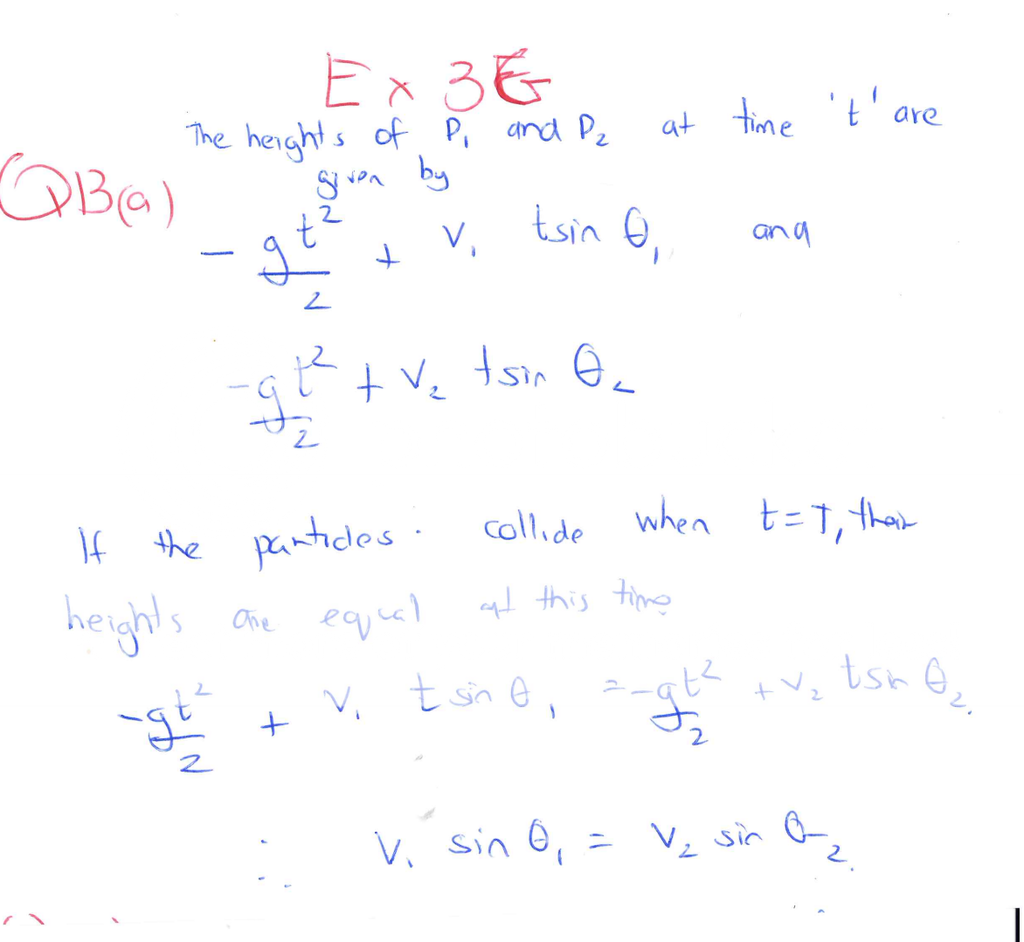 Ex 3G
The heights of P₁ and P₂ at time 't' are
given by
QB(a)
-gt²/2 + V₁ tsin θ₁ and
-gt²/2 + V₂ tsin θ₂
If the particles collide when t=T, their
heights are equal at this time
-gt²/2 + V₁ t sin θ₁ = -gt²/2 + V₂ tsin θ₂.
∴ V₁ sin θ₁ = V₂ sin θ₂.